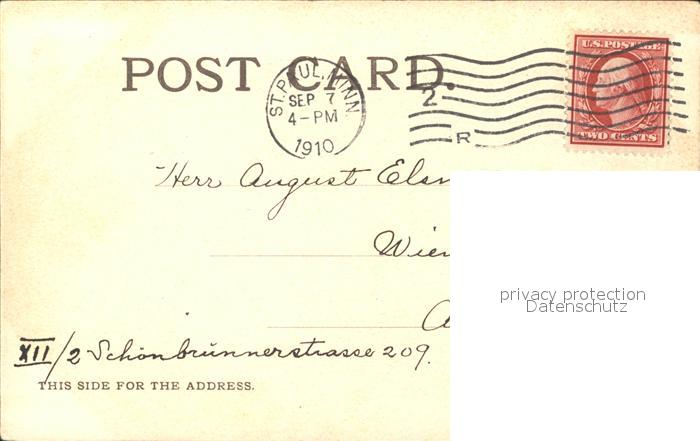 POST CARD.
ST. PAUL, MINN.
SEP 7
4-PM
1910
2
R
U.S. POSTAGE
TWO CENTS
Herr August
privacy protection
Datenschutz
XII/2 Schönbrunnerstrasse 209.
THIS SIDE FOR THE ADDRESS.